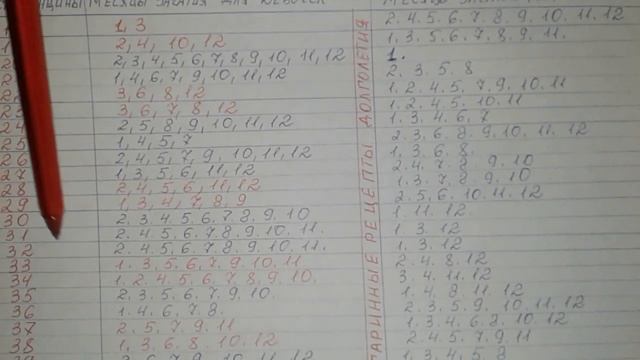 МЕСЯЦЫ ЗАЧАТИЯ ДЛЯ ДЕВОЧЕК
1, 3
2, 4, 10, 12
2, 3, 4, 5, 6, 7, 8, 9, 10, 11, 12
1, 4, 6, 7, 9, 10, 11, 12
3, 6, 8, 12
3, 6, 7, 8, 12
24 2, 5, 8, 9, 10, 11, 12
25 1, 4, 5, 7
26 2, 4, 5, 7, 9, 10, 11, 12
27 1, 3, 5, 6, 11, 12
28 2, 4, 5, 6, 11, 12
29 1, 3, 4, 7, 8, 9
30 2. 3. 4. 5. 6. 7. 8. 9. 10
31 2. 4. 5. 6. 7. 8. 9. 10. 11.
32 2. 4. 5. 6. 7. 8. 9. 10. 11.
33 1. 3. 5. 6. 7. 9. 10. 11
34 1. 2. 4. 5. 6. 7. 8. 9. 10.
35 2. 3. 5. 6. 7. 9. 10.
36 1. 4. 6. 7. 8.
37 2. 5. 7. 9. 11
38 1. 3. 6. 8. 10. 12
СТАРИННЫЕ РЕЦЕПТЫ ДОЛГОЛЕТИЯ
2. 4. 5. 6. 7. 8. 9. 10. 11. 12
1. 3. 5. 6. 7. 8. 9. 11.
1.
2. 3. 5. 8
1. 2. 4. 5. 7. 9. 10. 11
1. 2. 4. 5. 10. 11
1. 3. 4. 6. 7
2. 3. 6. 8. 9. 10. 11. 12
1. 3. 6. 8.
2. 4. 7. 8. 9. 10
1. 3. 7. 8. 9. 10
2. 5. 6. 10. 11. 12
1. 11. 12
1. 3. 12
1. 3. 12
2. 4. 8. 12
3. 4. 11. 12
1. 4. 8. 11. 12
2. 3. 5. 9. 10. 11. 12
1. 3. 4. 6. 8. 10. 12
2. 4. 5. 7. 9. 11